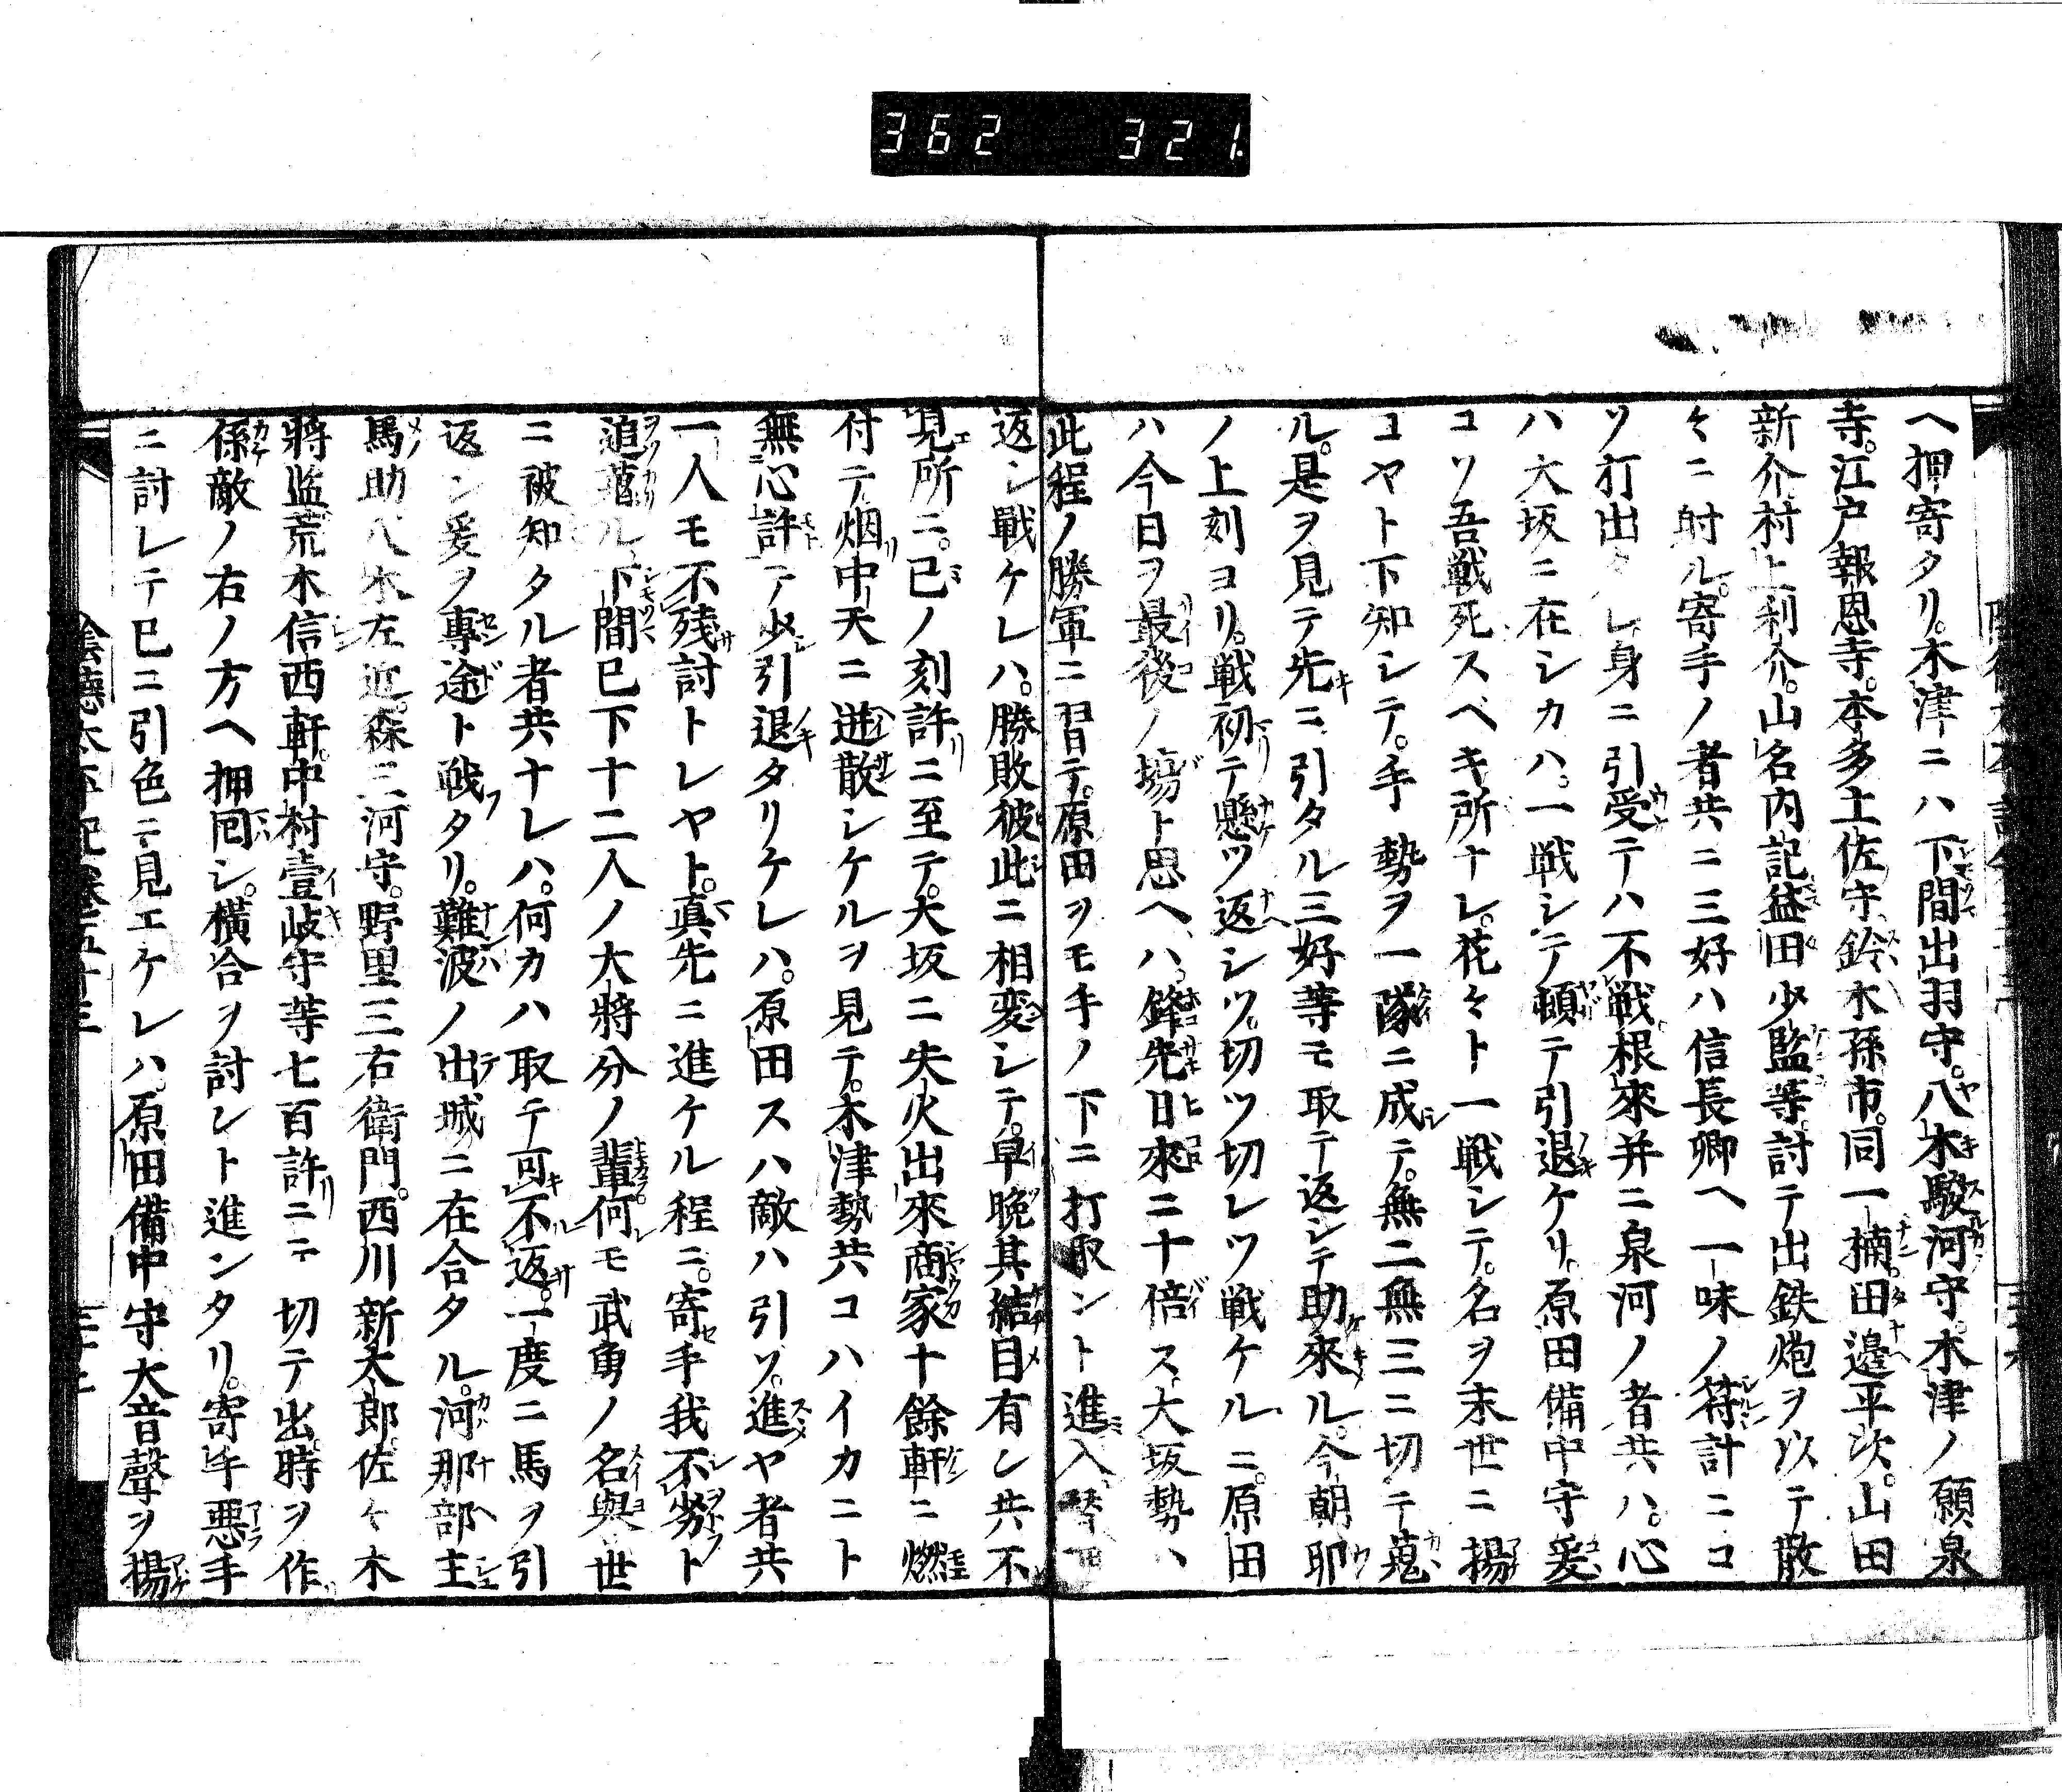 362 321.
ヘ押寄タリ。木津ニハ下間出羽守。八木駿河守。木津ノ願泉
寺。江戸報恩寺。本多土佐守。鈴木孫市。同一楠。田邉平次。山田
新介村上利介。山名内記益田少監等。討テ出鉄炮ヲ以テ散
々ニ射ル。寄手ノ者共ニ三好ハ信長卿ヘ一味ノ符計ニコ
ソ打出タレ身ニ引受テハ不戦根來并ニ泉河ノ者共ハ。心
ハ大坂ニ在シカハ。一戦シテ頓テ引退ケリ。原田備中守爰
コソ吾戦死スベキ所ナレ。花々ト一戦シテ。名ヲ末世ニ揚
コヤト下知シテ。手勢ヲ一隊ニ成テ。無二無三ニ切テ蒐
ル。是ヲ見テ先ニ引タル三好等モ取テ返シテ助來ル。今朝卯
ノ上刻ヨリ。戦初テ懸ツ返シツ。切ツ切レツ戦ケルニ。原田
ハ今日ヲ最後ノ場ト思ヘハ。鋒先日來ニ十倍ス。大坂勢ハ
此程ノ勝軍ニ習テ。原田ヲモ手ノ下ニ打取ント進入
返シ戰ケレハ。勝敗彼此ニ相変シテ。早晩其結目有レ共不
見所ニ。已ノ刻許ニ至テ。大坂ニ失火出來商家十餘軒ニ燃
付テ烟中天ニ迸散シケルヲ見テ。木津勢共コハイカニト
無心許テ少引退タリケレハ。原田スハ敵ハ引ソ。進ヤ者共
一人モ不残討トレヤト。真先ニ進ケル程ニ。寄手我不劣ト
追蒐ル。下間已下十二人ノ大將分ノ輩何モ武勇ノ名與世
ニ被知タル者共ナレハ。何カハ取テ可不返。一度ニ馬ヲ引
返シ爰ヲ專途ト戦タリ。難波ノ出城ニ在合タル。河那部主
馬助八木左近。森三河守。野里三右衛門。西川新太郎。佐々木
將監荒木信西軒。中村壹岐守等七百許ニテ切テ出。時ヲ作
係敵ノ右ノ方ヘ押囘シ。横合ヲ討レト進ンタリ。寄手悪手
ニ討レテ巳ニ引色ニテ見エケレハ。原田備中守大音聲ヲ揚
陰徳太平記卷五十三